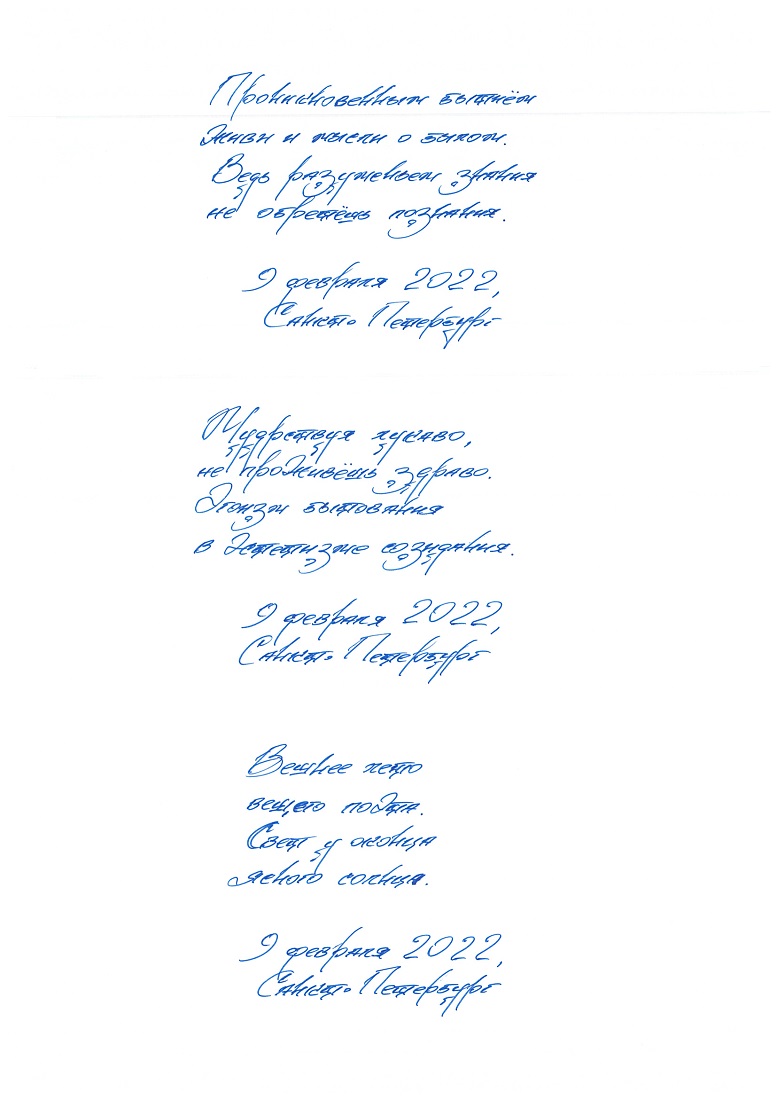 Проникновенным бытиём
живи и мысли о былом.
Ведь разуменьем знания
не обретёшь познания.
9 февраля 2022,
Санкт-Петербург
Мудрствуя лукаво,
не проживёшь здраво.
Эгоизм бытования
в эстетизме созидания.
9 февраля 2022,
Санкт-Петербург
Вешнее лето
вещего поэта.
Свет у оконца
ясного солнца.
9 февраля 2022,
Санкт-Петербург